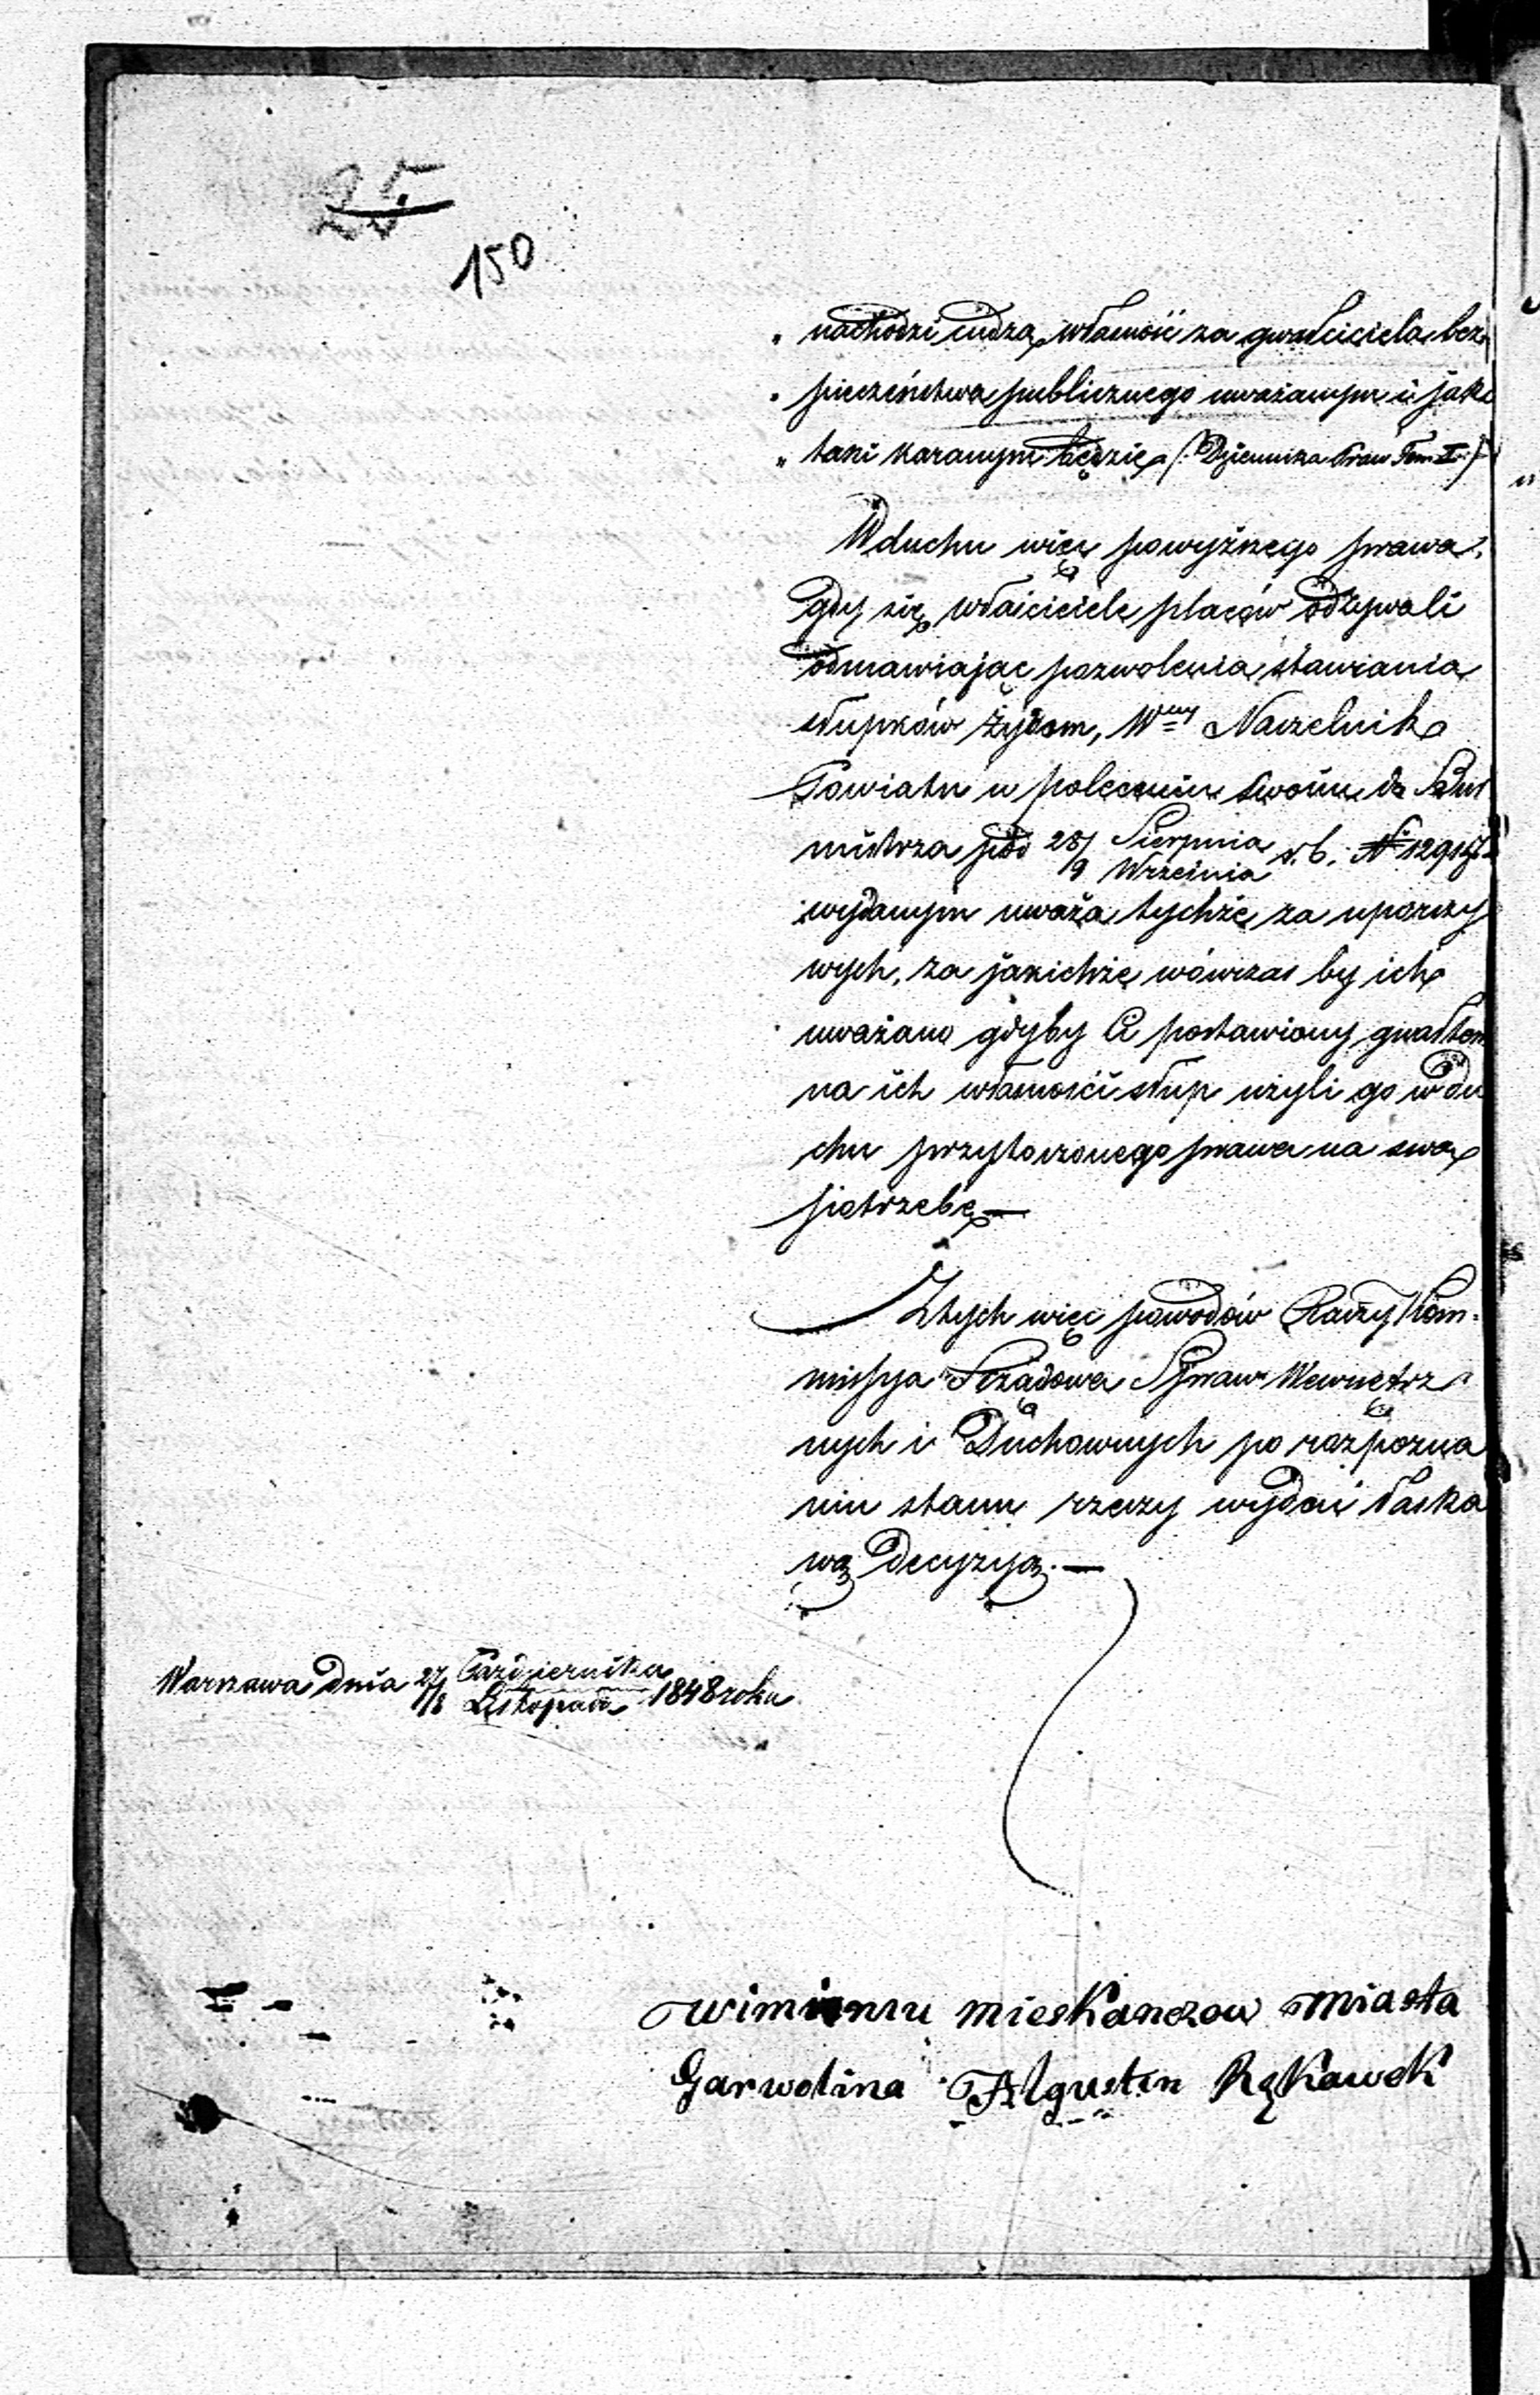 25
150
„ nachodzi cudzą własność za gwałciciela bez
„ pieczeństwa publicznego uważanym i jako
„ taki karanym będzie /: Dziennika Praw Tom I :/
W duchu więc powyższego prawa,
gdy się właściciele placów odzywali
odmawiając pozwolenia stawiania
słupków Żydom, Wny Naczelnik
Powiatu w poleceniu swoim do Bur
mistrza pod 28/9 Sierpnia Września r. b. N 12914
wydanym uważa tychże za uporczy
wych, za jakichże wówczas by ich
uważano gdyby Ci postawiony gwałtem
na ich własności słup użyli go w du
chu przytoczonego prawa na swą
potrzebę —
Z tych więc powodów Raczy Kom-
missya Rządowa Spraw Wewnętrz
nych i Duchownych po rozpozna
niu stanu rzeczy wydać łaska
wą Decyzyą. —
Warszawa dnia 27/8 Października Listopada 1848 roku
wimieniu mieskanczow miasta
Garwolina Algustin Rąkawek